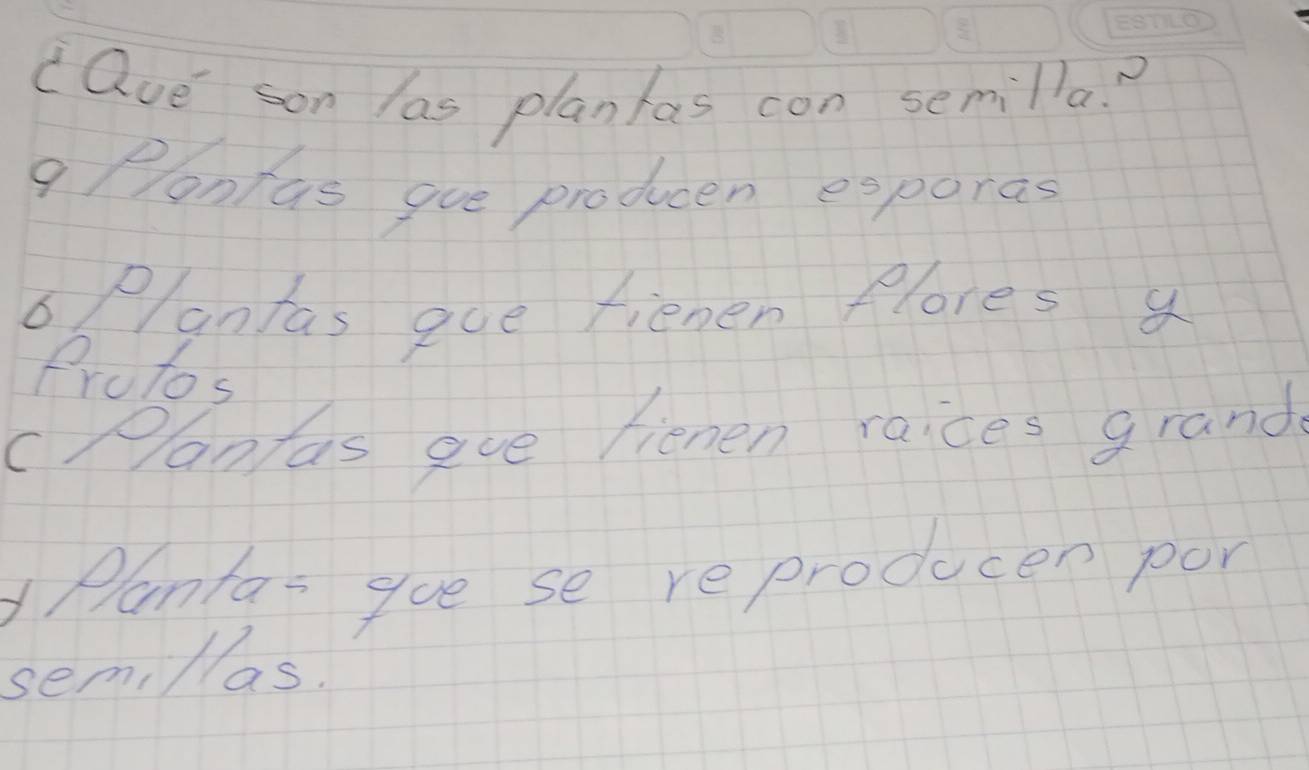 ESTILO
¿Qué son las plantas con semilla?
a Plantas que producen esporas
b Plantas que tienen flores y
frutos
c Plantas que tienen raices grande
d Plantas que se reproducen por
semillas.